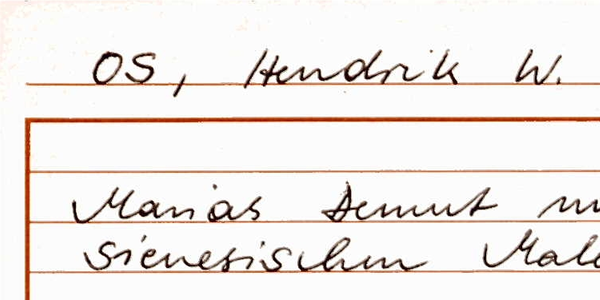 OS, Hendrik W.
Marias Demut
sienesischen